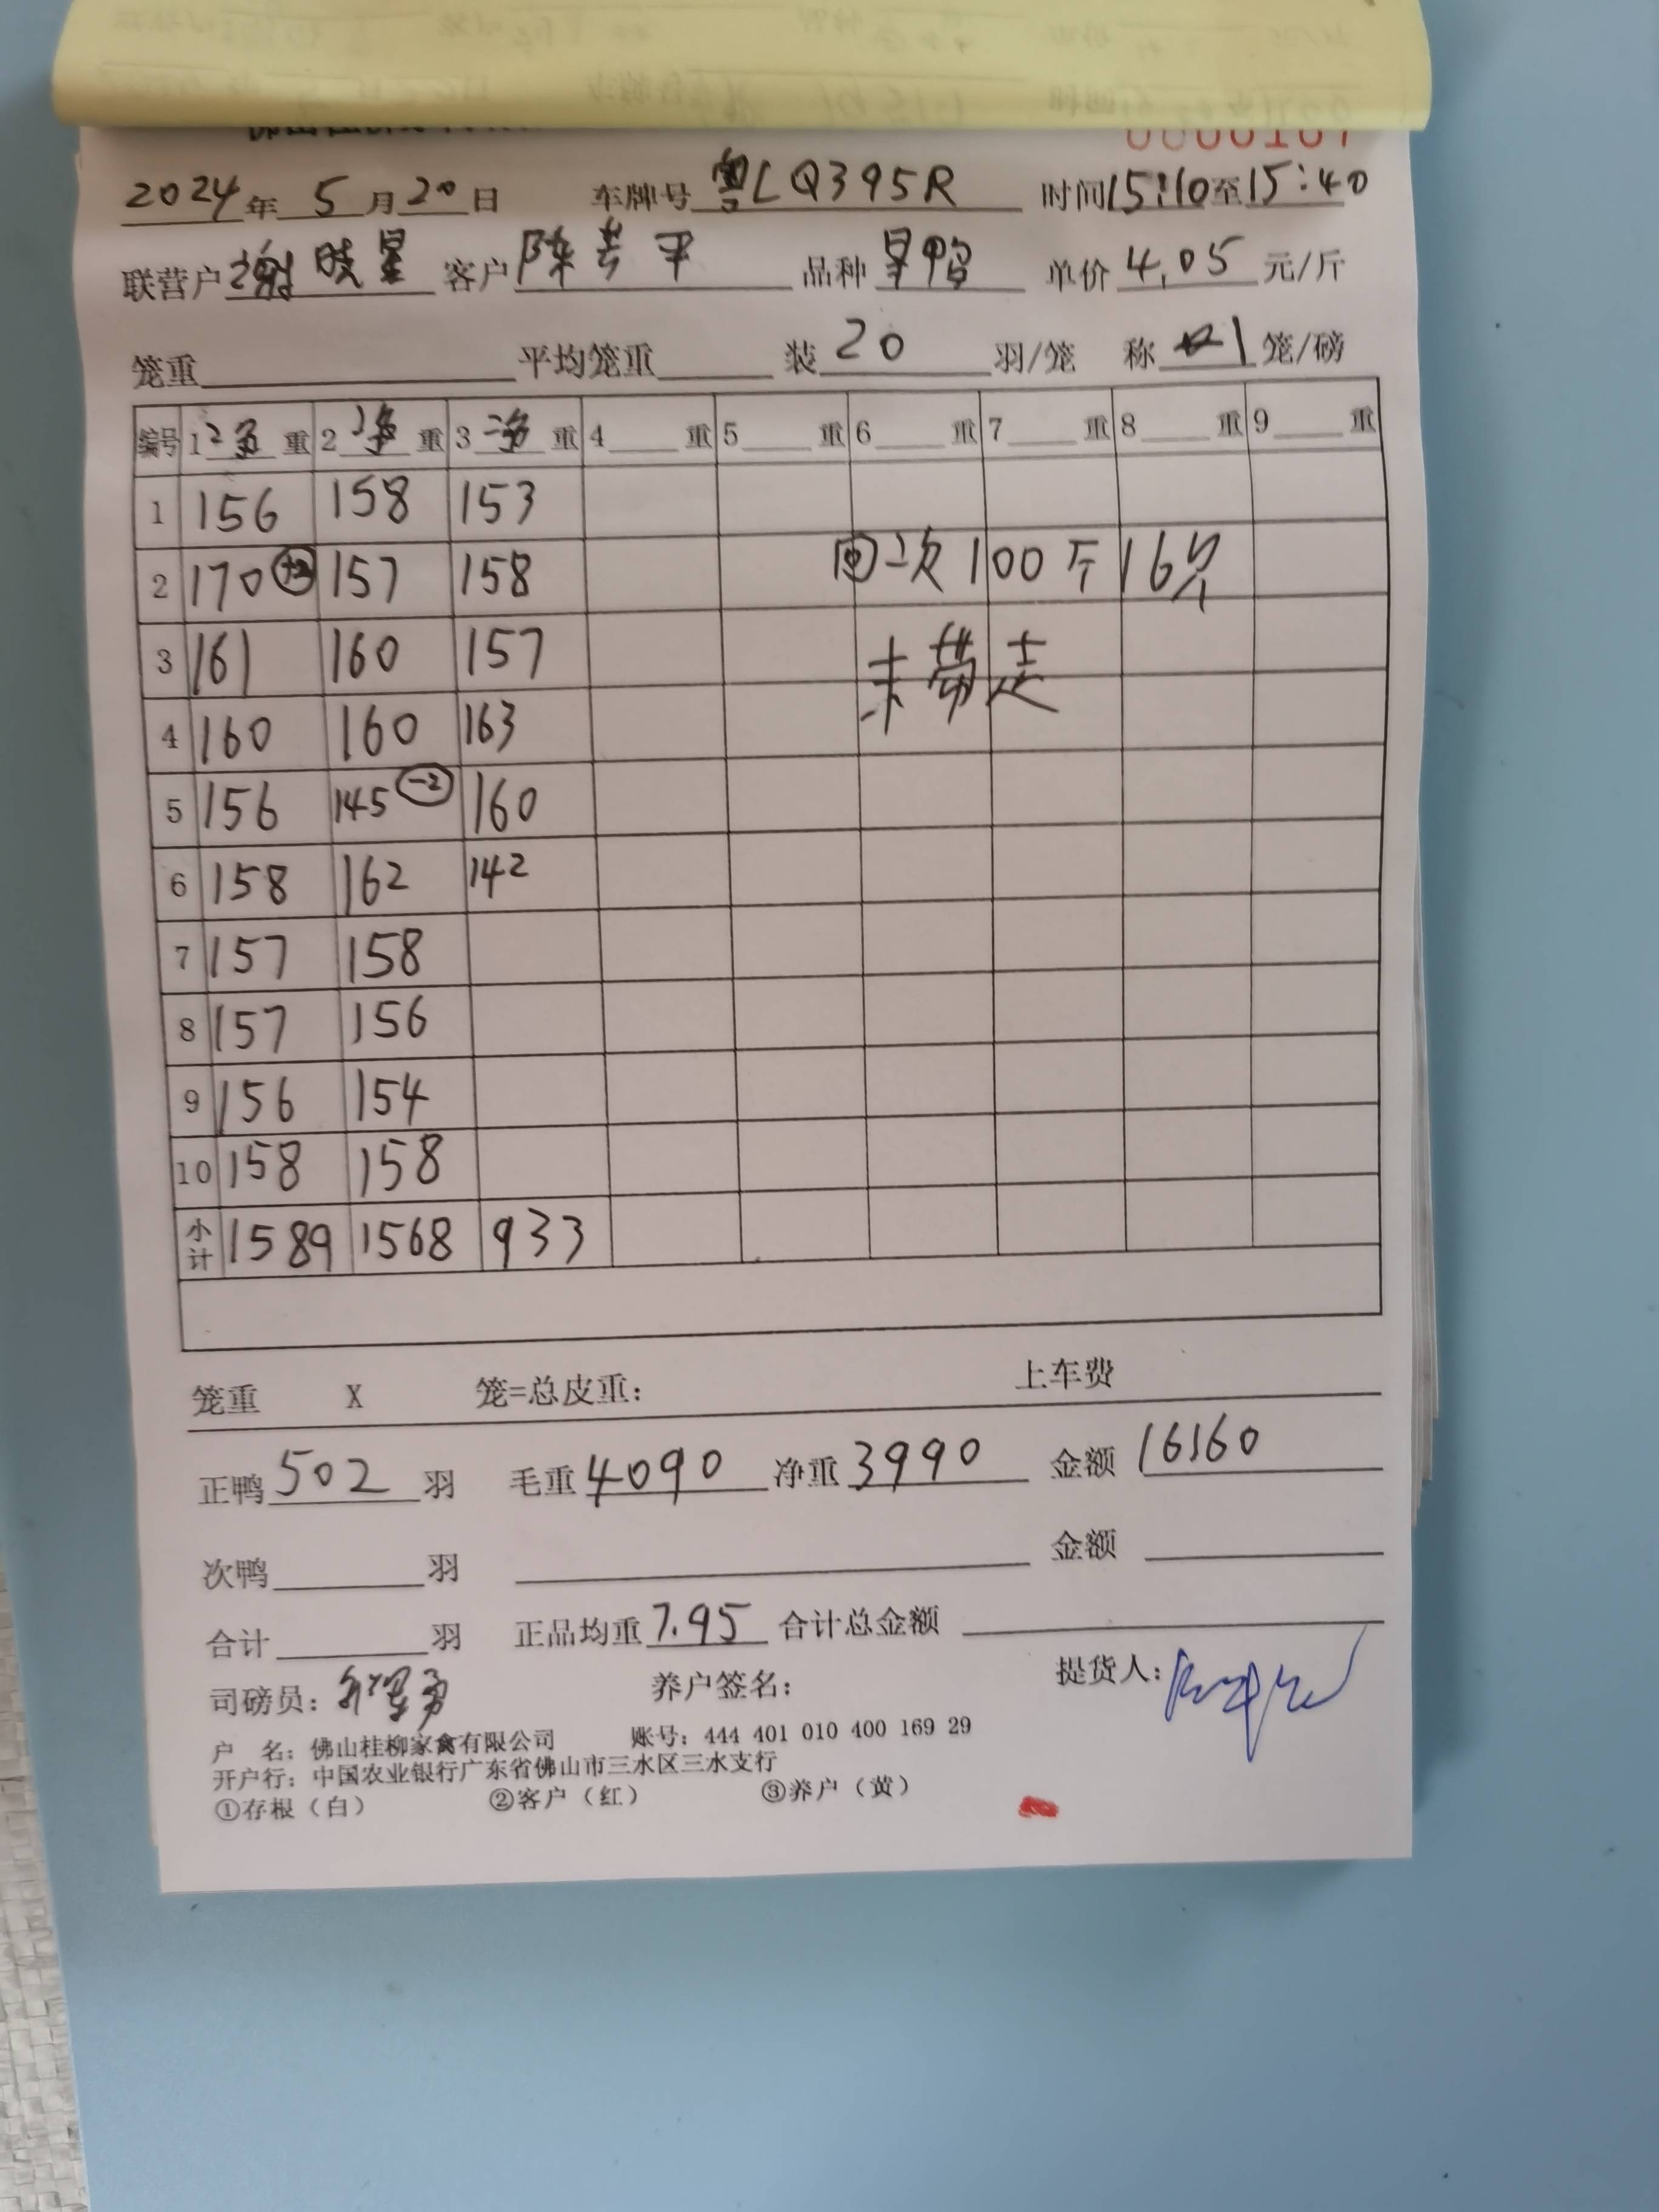 2024年 5月20日 车牌号 粤LQ395R 时间15:10至15:40
联营户 谢晓星 客户 陈 平 品种 旱鸭 单价 4.05 元/斤
笼重 平均笼重 装 20 羽/笼 称 1 笼/磅
编号 1 净 重 2 净 重 3 净 重 4 重 5 重 6 重 7 重 8 重 9 重
1 156 158 153
2 170 157 158 回次100斤16只
3 161 160 157 未带走
4 160 160 163
5 156 145 -2 160
6 158 162 142
7 157 158
8 157 156
9 156 154
10 158 158
小计 1589 1568 933
笼重 X 笼=总皮重: 上车费
正鸭 502 羽 毛重 4090 净重 3990 金额 16160
次鸭 羽 金额
合计 羽 正品均重 7.95 合计总金额
司磅员: 养户签名: 提货人:
户 名: 佛山桂柳家禽有限公司 账号: 444 401 010 400 169 29
开户行: 中国农业银行广东省佛山市三水区三水支行
①存根（白） ②客户（红） ③养户（黄）